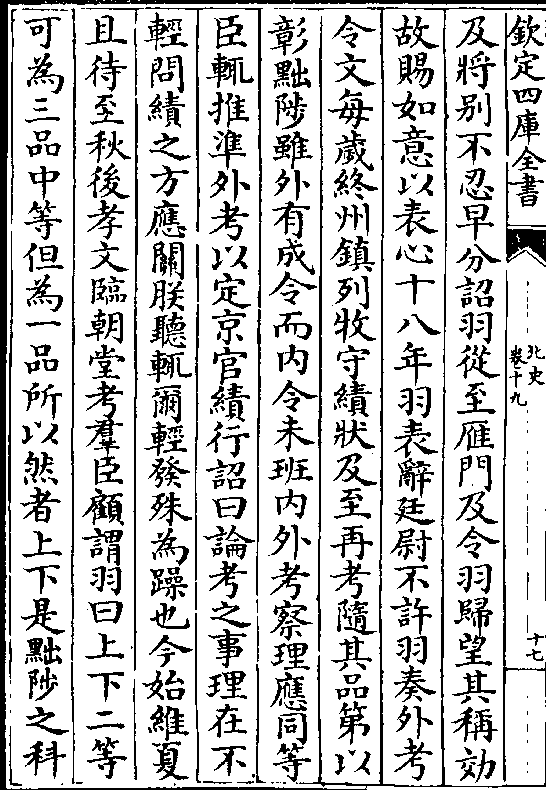 欽定四庫全書
北史
卷十九
十七
及將别不忍早分詔羽從至雁門及令羽歸望其稱効
故賜如意以表心十八年羽表辭廷尉不許羽奏外考
令文每歲終州鎮列牧守績狀及至再考隨其品第以
彰黜陟雖外有成令而内令未班内外考察理應同等
臣輒推準外考以定京官績行詔曰論考之事理在不
輕問績之方應關朕聽輒爾輕發殊為躁也今始維夏
且待至秋後孝文臨朝堂考羣臣顧謂羽曰上下二等
可為三品中等但為一品所以然者上下是黜陟之科